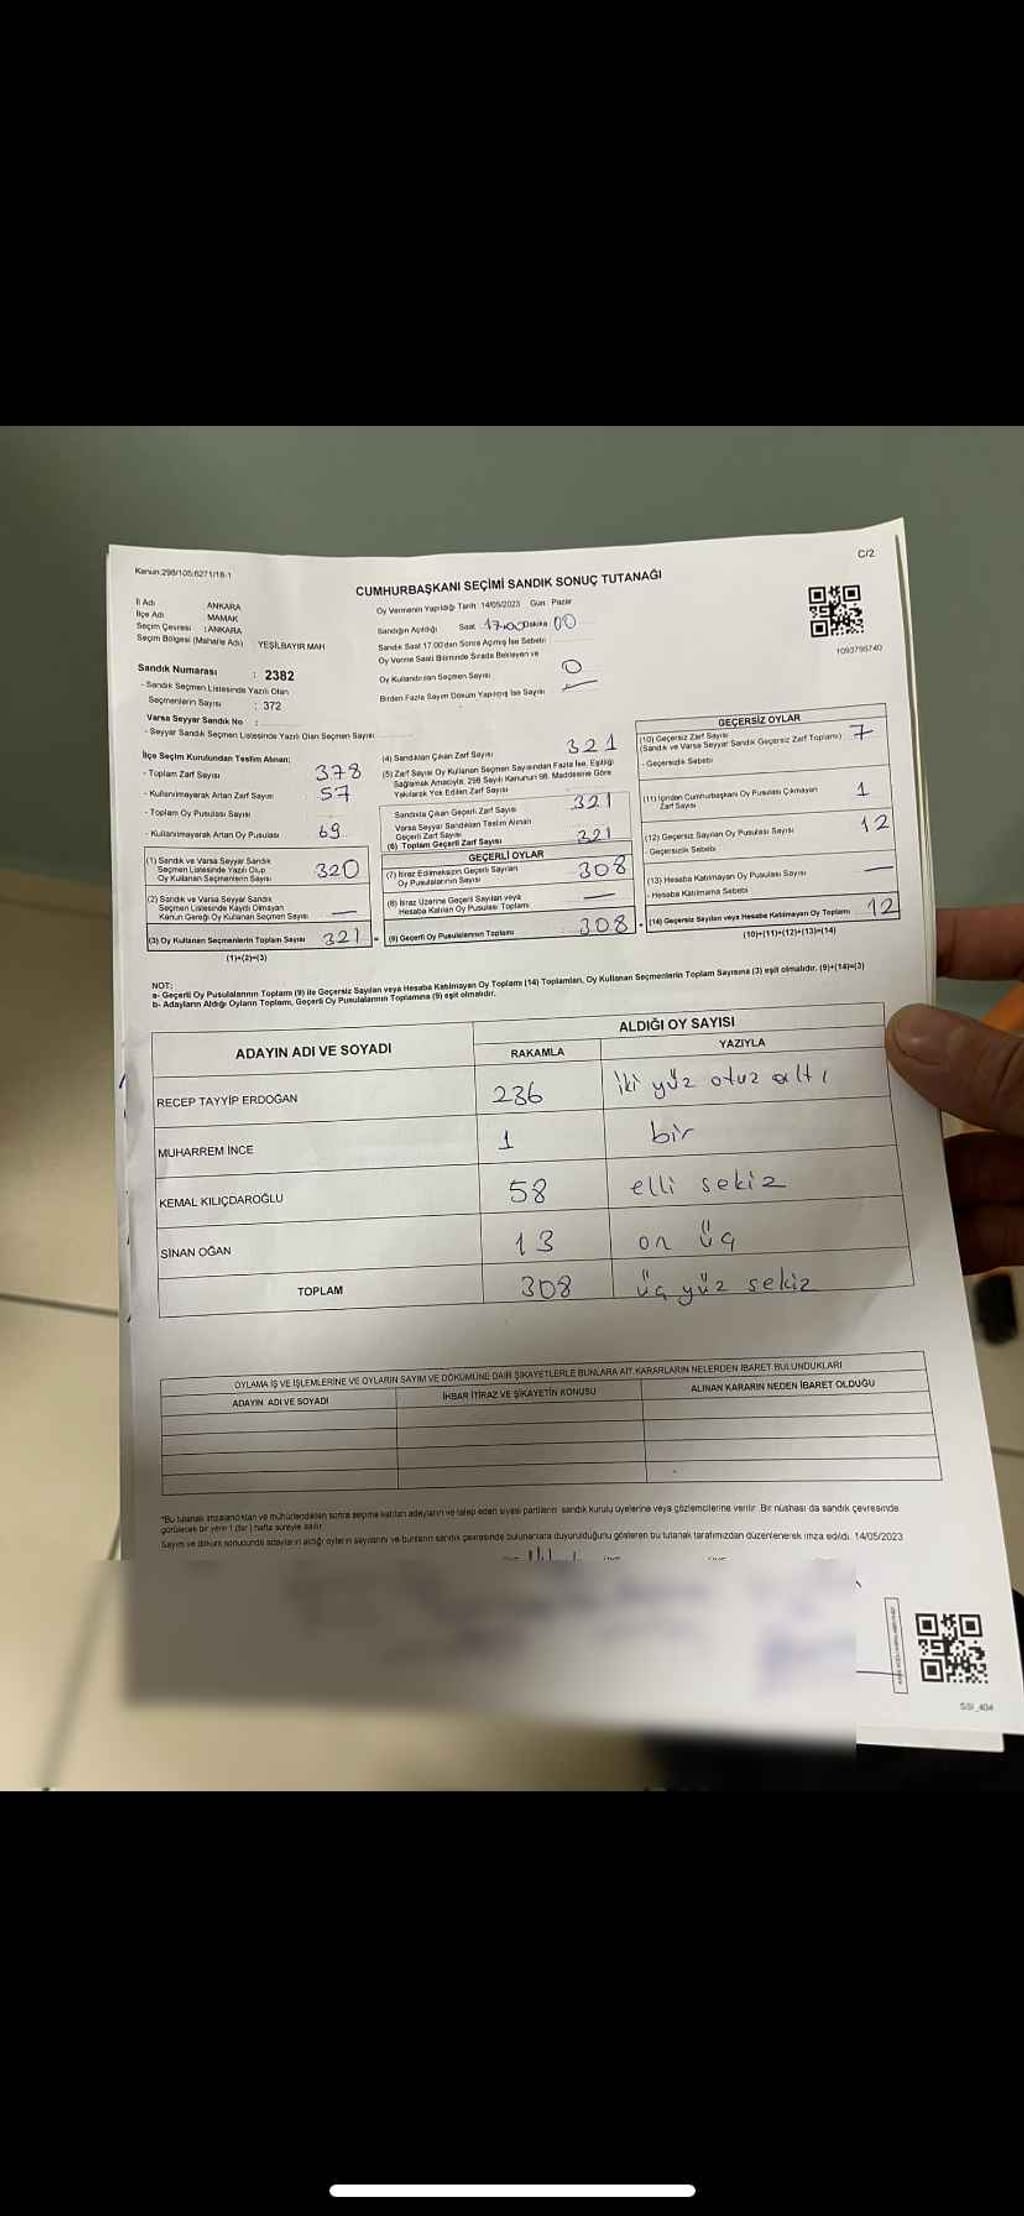 C/2
Kanun:298/105;6271/18-1
CUMHURBAŞKANI SEÇİMİ SANDIK SONUÇ TUTANAĞI
İl Adı : ANKARA
İlçe Adı : MAMAK
Seçim Çevresi : ANKARA
Seçim Bölgesi (Mahalle Adı) YEŞİLBAYIR MAH
Oy Vermenin Yapıldığı Tarih 14/05/2023 Gün: Pazar
Sandığın Açıldığı Saat 17.00 Dakika 00
Sandık Saat 17.00'dan Sonra Açılmış İse Sebebi:
Oy Verme Saati Bitiminde Sırada Bekleyen ve
Oy Kullandırılan Seçmen Sayısı 0
Birden Fazla Sayım Döküm Yapılmış İse Sayısı
1093795740
Sandık Numarası : 2382
- Sandık Seçmen Listesinde Yazılı Olan
Seçmenlerin Sayısı : 372
Varsa Seyyar Sandık No :
- Seyyar Sandık Seçmen Listesinde Yazılı Olan Seçmen Sayısı
İlçe Seçim Kurulundan Teslim Alınan;
- Toplam Zarf Sayısı 378
- Kullanılmayarak Artan Zarf Sayısı 57
- Toplam Oy Pusulası Sayısı
- Kullanılmayarak Artan Oy Pusulası 69
(1) Sandık ve Varsa Seyyar Sandık
Seçmen Listesinde Yazılı Olup
Oy Kullanan Seçmenlerin Sayısı 320
(2) Sandık ve Varsa Seyyar Sandık
Seçmen Listesinde Kayıtlı Olmayan
Kanun Gereği Oy Kullanan Seçmen Sayısı —
(3) Oy Kullanan Seçmenlerin Toplam Sayısı 321 =
(1)+(2)=(3)
(4) Sandıktan Çıkan Zarf Sayısı 321
(5) Zarf Sayısı Oy Kullanan Seçmen Sayısından Fazla İse, Eşitliği
Sağlamak Amacıyla, 298 Sayılı Kanunun 98. Maddesine Göre
Yakılarak Yok Edilen Zarf Sayısı
Sandıkta Çıkan Geçerli Zarf Sayısı 321
Varsa Seyyar Sandıktan Teslim Alınan
Geçerli Zarf Sayısı
(6) Toplam Geçerli Zarf Sayısı 321
GEÇERLİ OYLAR
(7) İtiraz Edilmeksizin Geçerli Sayılan
Oy Pusulalarının Sayısı 308
(8) İtiraz Üzerine Geçerli Sayılan veya
Hesaba Katılan Oy Pusulası Toplamı —
(9) Geçerli Oy Pusulalarının Toplamı 308
GEÇERSİZ OYLAR
(10) Geçersiz Zarf Sayısı 7
(Sandık ve Varsa Seyyar Sandık Geçersiz Zarf Toplamı)
- Geçersizlik Sebebi
(11) İçinden Cumhurbaşkanı Oy Pusulası Çıkmayan
Zarf Sayısı 1
(12) Geçersiz Sayılan Oy Pusulası Sayısı 12
- Geçersizlik Sebebi
(13) Hesaba Katılmayan Oy Pusulası Sayısı —
- Hesaba Katılmama Sebebi
(14) Geçersiz Sayılan veya Hesaba Katılmayan Oy Toplamı 12
(10)+(11)+(12)+(13)=(14)
NOT:
a- Geçerli Oy Pusulalarının Toplamı (9) ile Geçersiz Sayılan veya Hesaba Katılmayan Oy Toplamı (14) Toplamları, Oy Kullanan Seçmenlerin Toplam Sayısına (3) eşit olmalıdır. (9)+(14)=(3)
b- Adayların Aldığı Oyların Toplamı, Geçerli Oy Pusulalarının Toplamına (9) eşit olmalıdır.
ADAYIN ADI VE SOYADI
ALDIĞI OY SAYISI
RAKAMLA YAZIYLA
RECEP TAYYİP ERDOĞAN 236 iki yüz otuz altı
MUHARREM İNCE 1 bir
KEMAL KILIÇDAROĞLU 58 elli sekiz
SİNAN OĞAN 13 on üç
TOPLAM 308 üç yüz sekiz
OYLAMA İŞ VE İŞLEMLERİNE VE OYLARIN SAYIM VE DÖKÜMÜNE DAİR ŞİKAYETLERLE BUNLARA AİT KARARLARIN NELERDEN İBARET BULUNDUKLARI
ADAYIN ADI VE SOYADI İHBAR İTİRAZ VE ŞİKAYETİN KONUSU ALINAN KARARIN NEDEN İBARET OLDUĞU
*Bu tutanak imzalandıktan ve mühürlendikten sonra seçime katılan adayların ve talep eden siyasi partilerin sandık kurulu üyelerine veya gözlemcilerine verilir. Bir nüshası da sandık çevresinde
görülecek bir yere 1 (bir) hafta süreyle asılır.
Sayım ve döküm sonucunda adayların aldığı oyların sayılarını ve bunların sandık çevresinde bulunanlara duyurulduğunu gösteren bu tutanak tarafımızdan düzenlenerek imza edildi. 14/05/2023
SSI_404